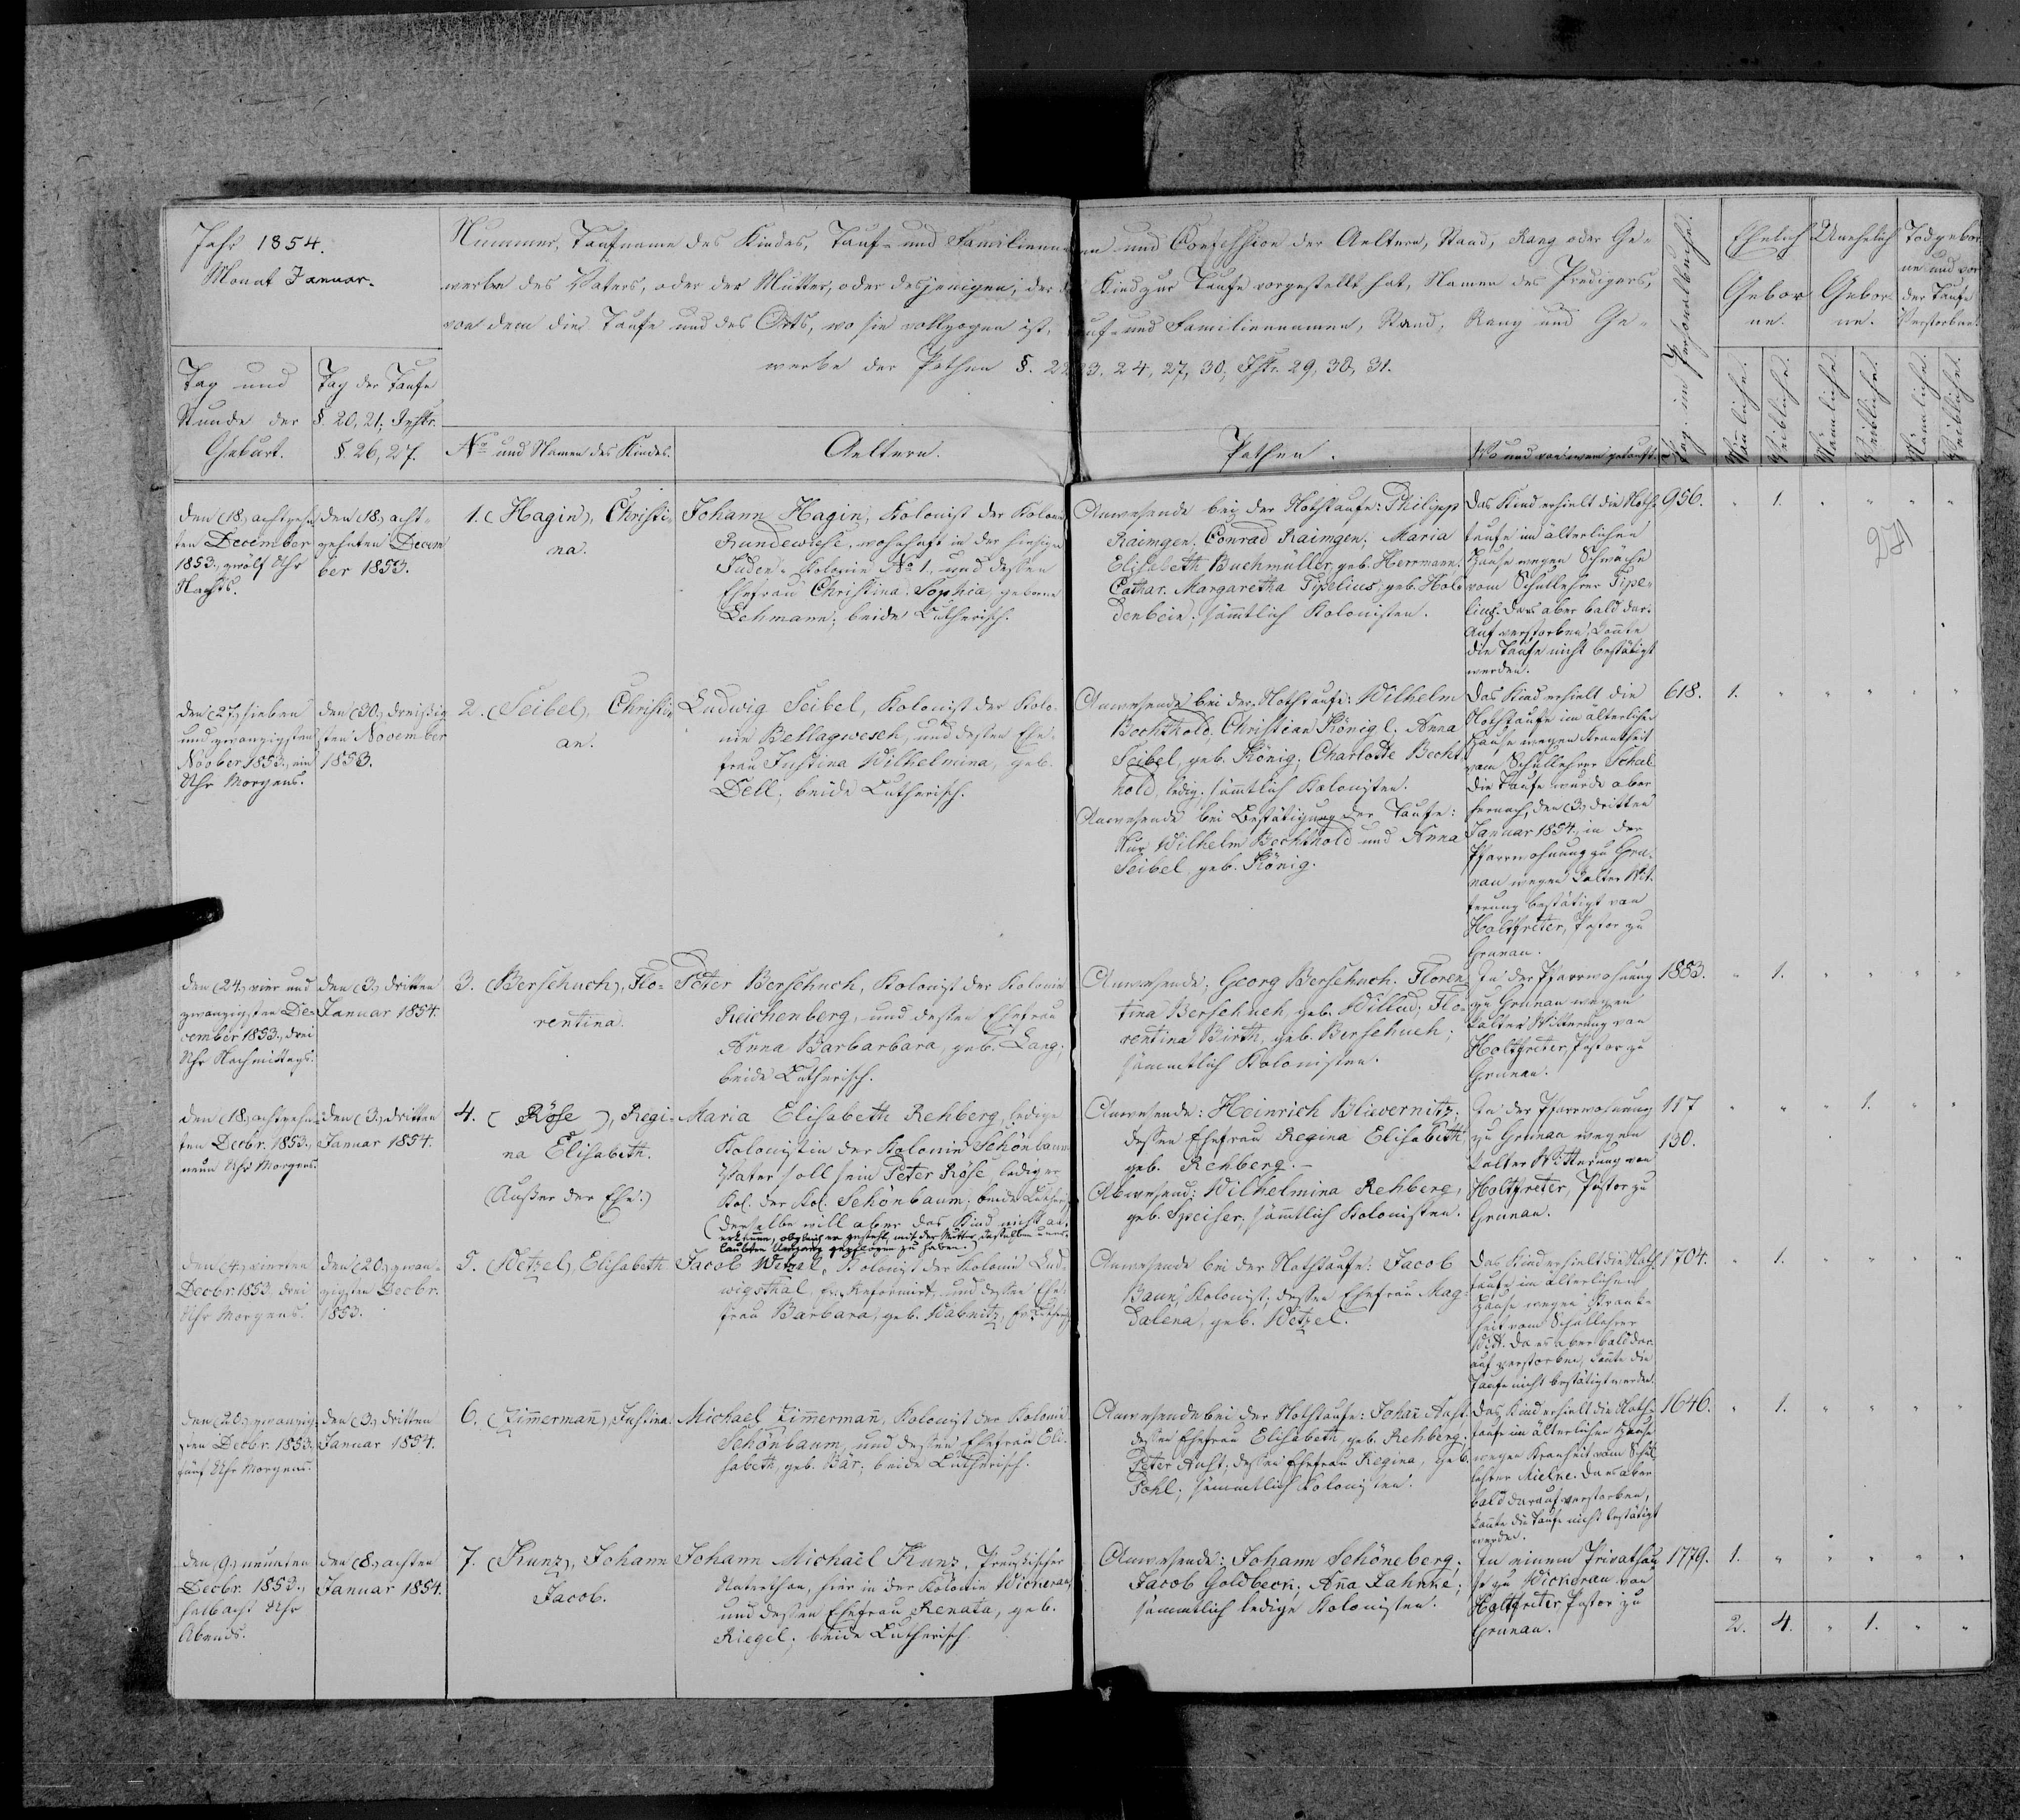 Jahr 1854.
Monat Januar.
Tag und
Stunde der
Geburt.
Tag der Taufe
§. 20, 21; Instr.
§. 26, 27.
Nummer, Taufname des Kindes, Tauf- und Familiennamen und Confession der Aeltern, Stand, Rang oder Ge-
werbe des Vaters, oder der Mutter, oder desjenigen, der das Kind zur Taufe vorgestellt hat, Namen des Predigers,
von dem die Taufe und des Orts, wo sie vollzogen ist, Tauf- und Familiennamen, Stand, Rang und Ge-
werbe der Pathen §. 22, 23. 24, 27, 30, Instr. 29, 30, 31.
No und Namen des Kindes.
Aeltern.
Pathen.
Wo und von wem getauft.
Pag. im Personalbuche.
Ehelich
Gebor
ne.
Unehelich
Gebor
ne.
Todgebor
ne und vor
der Taufe
Verstorbene.
Männliche.
Weibliche.
Männliche.
Weibliche.
Männliche.
Weibliche.
271
den (18.) achtzehn
ten December
1853., zwölf Uhr
Nachts.
den (18.) acht-
zehnten Decem
ber 1853.
1. (Hagin), Christi-
na.
Johann Hagin, Kolonist der Kolonie
Rundewiese, wohnhaft in der hiesigen
Juden-Kolonie No 1, und dessen
Ehefrau Christina Sophia, geborne
Lehmann; beide Lutherisch.
Anwesende bey der Nothtaufe: Philipp
Raimgen, Conrad Raimgen; Maria
Elisabeth Buchmüller, geb. Herrmann.
Cathar. Margaretha Tiszelius; geb. Hol-
denbein; sämmtlich Kolonisten.
Das Kind erhielt die Noth-
taufe im älterlichen
Hause wegen Schwäche
vom Schullehrer Tisze-
lius. Da es aber bald dar-
auf verstorben, konnte
die Taufe nicht bestätigt
werden.
956. " 1. " " " "
den (27.) sieben
und zwanzigsten
Novber 1853., ein
Uhr Morgens.
den (30.) dreißig
sten November
1853.
2. (Seibel), Christi-
an.
Ludwig Seibel, Kolonist der Kolo-
nie Bellagwesch, und dessen Ehe-
frau Justina Wilhelmina, geb.
Dell; beide Lutherisch.
Anwesende bei der Nothtaufe: Wilhelm
Bechthold, Christian König l. Anna
Seibel, geb. König; Charlotte Becht-
hold, ledig; sämtlich Kolonisten.
Anwesende bei Bestätigung der Taufe:
Nur Wilhelm Bechthold und Anna
Seibel, geb. König.
Das Kind erhielt die
Nothtaufe im älterlichen
Hause wegen Krankheit
vom Schullehrer Schal
Die Taufe wurde aber
hernach, den (3.) dritten
Januar 1854., in der
Pfarrwohnung zu Gru-
nau wegen kalter Wit-
terung bestätigt von
Holtfreter, Pastor zu
Grunau.
618. 1. " " " " "
den (24.) vier und
zwanzigsten De-
cember 1853., drei
Uhr Nachmittags.
den (3.) dritten
Januar 1854.
3. (Berschuch), Flo-
rentina.
Peter Berschuch, Kolonist der Kolonie
Reichenberg, und dessen Ehefrau
Anna Barbarbara, geb. Lang;
beide Lutherisch.
Anwesende: Georg Berschuch. Floren-
tina Berschuch, geb. Willud; Flo-
rentina Birth, geb. Berschuch;
sämmtlich Kolonisten.
In der Pfarrwohnung
zu Grunau wegen
kalter Witterung von
Holtfreter, Pastor zu
Grunau.
1853. " 1. " " " "
den (18.) achtzehn-
ten Decbr. 1853.,
neun Uhr Morgens.
den (3.) dritten
Januar 1854.
4. ( Röse ), Regi-
na Elisabeth.
(Außer der Ehe.)
Maria Elisabeth Rehberg, ledige
Kolonistin der Kolonie Schönbaum
Vater soll sein Peter Röse, lediger
Kol. der Kol. Schönbaum; beide Lutherisch
(Derselbe will aber das Kind nicht an-
erkennen, obgleich er gesteht, mit der Mutter desselben uner-
laubten Umgang gepflogen zu haben.)
Anwesende: Heinrich Blievernitz;
dessen Ehefrau Regina Elisabeth
geb. Rehberg.-
Abwesend: Wilhelmina Rehberg,
geb. Speiser; sämtlich Kolonisten.
In der Pfarrwohnung
zu Grunau wegen
kalter Witterung von
Holtfreter, Pastor zu
Grunau.
117
130. " " " 1. " "
den (4.) vierten
Decbr. 1853. drei
Uhr Morgens.
den (20.) zwan-
zigsten Decbr.
1853.
5. (Wetzel), Elisabeth
Jacob Wetzel, Kolonist der Kolonie Lud-
wigsthal, ev. Reformirt, und dessen Ehe-
frau Barbara, geb. Wabnitz, Ev. Lutherisch
Anwesende bei der Nothtaufe: Jacob
Baun, Kolonist; dessen Ehefrau Mag-
dalena, geb. Wetzel.
Das Kind erhielt die Noth-
taufe im älterlichen
Hause wegen Krank-
heit vom Schullehrer
Da es aber bald dar-
auf verstorben, konte die
Taufe nicht bestätigt werden.
1704. " 1. " " " "
den (20.) zwanzig-
sten Decbr. 1853.
fünf Uhr Morgens.
den (3.) dritten
Januar 1854.
6. (Zimmermañ), Justina.
Michael Zimmermañ, Kolonist der Kolonie
Schönbaum, und dessen Ehefrau Eli-
sabeth, geb. Bär; beide Lutherisch.
Anwesende bei der Nothtaufe: Johañ Aust.
dessen Ehefrau Elisabeth, geb. Rehberg;
Peter Aust; dessen Ehefrau Regina, geb.
Pohl; sämmtlich Kolonisten.
Das Kind erhielt die Noth-
taufe im älterlichen Hause
wegen Krankheit vom Schul-
lehrer Mielke. Da es aber
bald darauf verstorben,
konte die Taufe nicht bestätigt
werden.
1646. " 1. " " " "
den (9.) neunten
Decbr. 1853.,
halbacht Uhr
Abends.
den (8.) achten
Januar 1854.
7. (Kunz), Johann
Jacob.
Johann Michael Kunz, Preußischer
Unterthan, hier in der Kolonie Wickerau,
und dessen Ehefrau Renata, geb.
Riegel; beide Lutherisch.
Anwesende: Johann Schöneberg;
Jacob Goldbeck; Aña Jahnke;
sämmtlich ledige Kolonisten.
In einem Privathau-
se zu Wickerau von
Holtfreter, Pastor zu
Grunau.
1779. 1. " " " " "
2. 4. " 1. " "